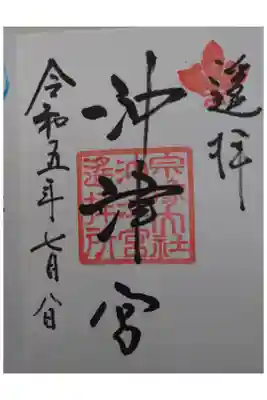 遥拝
沖津宮
宗像大社
沖津宮
遙拝所
令和五年七月八日